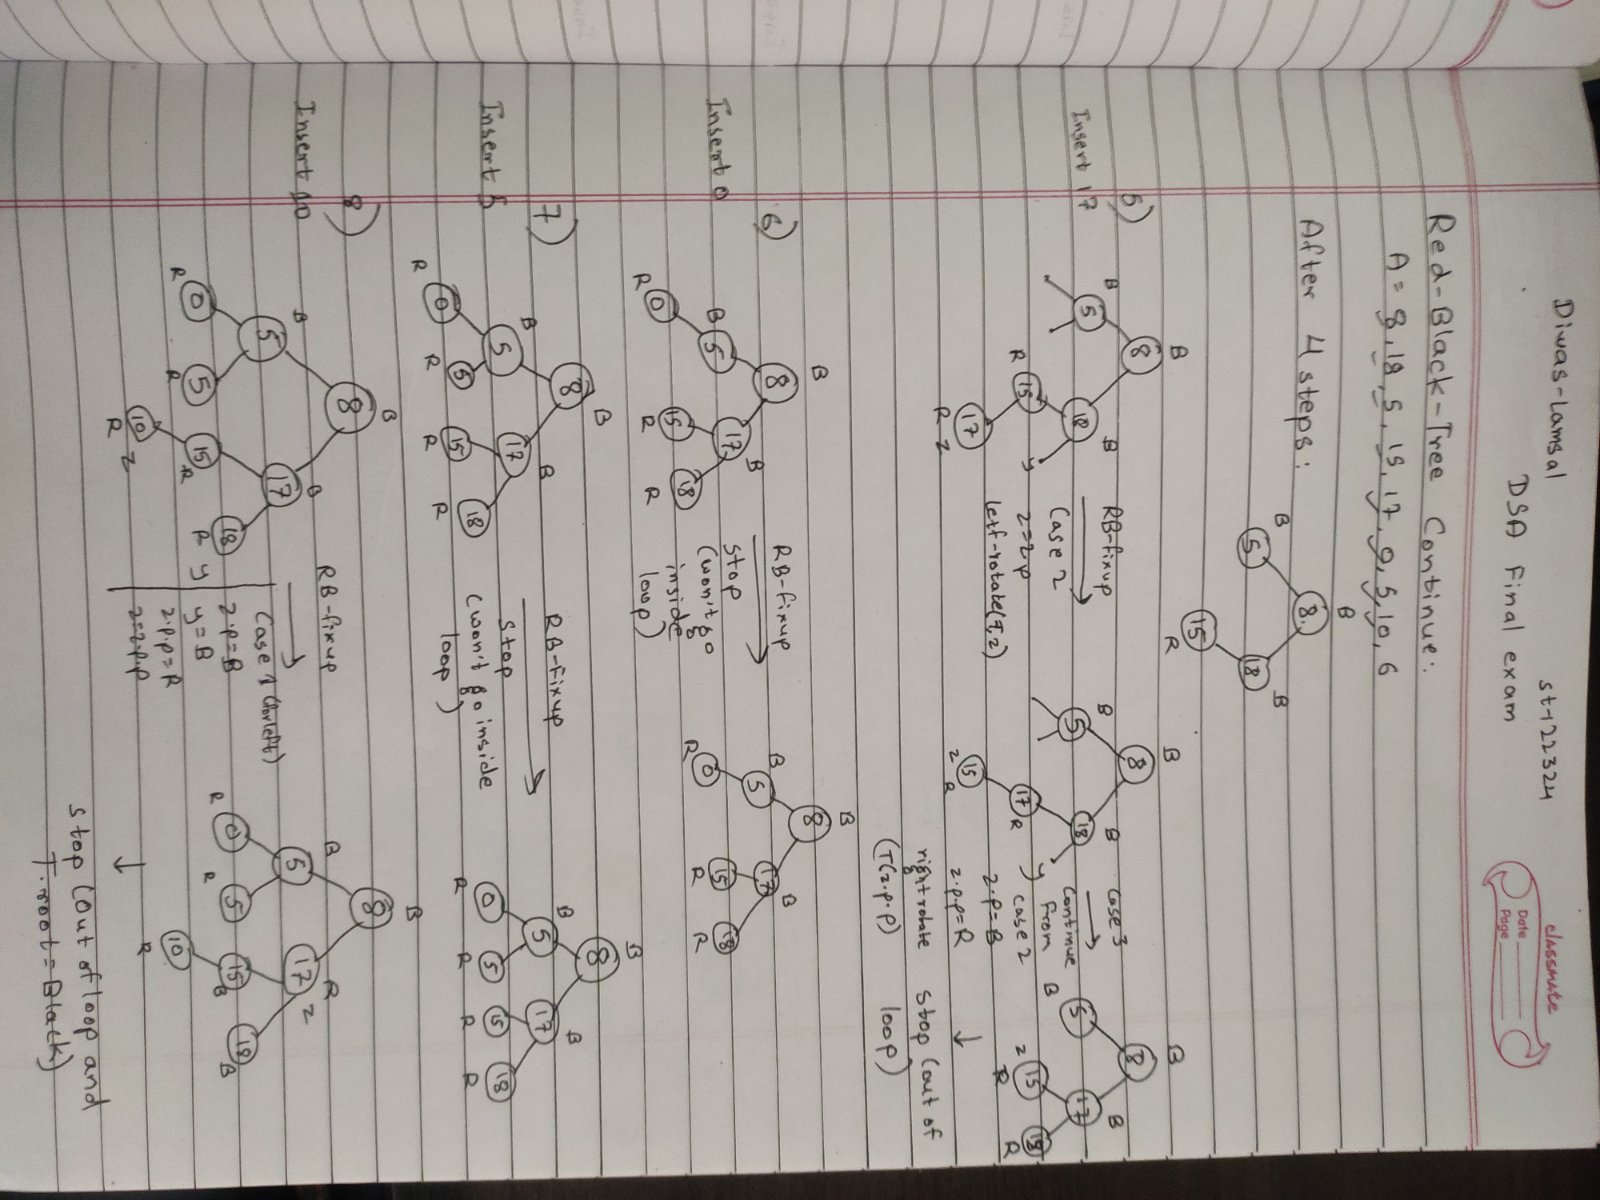 Diwas-Lamsal st-122324
DSA Final exam
classmate
Date
Page
Red-Black-Tree Continue:
A = 8, 18, 5, 15, 17, 0, 5, 10, 6
After 4 steps:
B
8
B B
5 18
15
R
5)
Insert 17
B
8
B B
5 18
R 15 y
17
R z
RB-fixup
Case 2
z=z.p
letf-rotate(T,z)
B
8
B B
5 18
17 R y
z 15 R
Case 3
Continue
from
case 2
z.p=B
z.p.p=R
right rotate
(T(z.p.p)
B
8
B
5 17
B
z 15 18
R R
stop (out of
loop)
6)
Insert 0
B
8
B
B 5 17
0 15 18
R R R
RB-fixup
stop
(won't go
inside
loop)
B
8
B B
5 17
0 15 18
R R R
7)
Insert 5
B
8
B B
5 17
0 5 15 18
R R R R
RB-Fixup
Stop
(won't go inside
loop)
B
8
B B
5 17
0 5 15 18
R R R R
8)
Insert 10
B
8
B B
5 17
0 5 15 18
R R R R y
10 z
R
RB-fixup
Case 1 (for left)
z.p=B
y=B
z.p.p=R
z=z.p.p
B
8
B R
5 17 z
0 5 15 18
R R B B
10
R
stop (Out of loop and
T.root=Black)